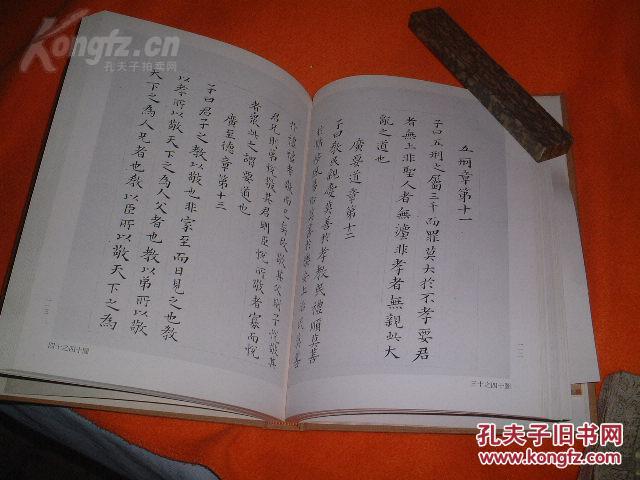 Kongfz.cn
孔夫子拍卖网
五刑章第十一
子曰五刑之屬三千而罪莫大於不孝要君
者無上非聖人者無灋非孝者無親此大
亂之道也
廣要道章第十二
子曰教民親愛莫善於孝教民禮順莫善
安上治民莫善
一二
圖十四之十三
於禮禮者敬而已矣故敬其父則子悅敬其
兄則弟悅敬其君則臣悅所敬者寡而悅
者眾此之謂要道也
廣至德章第十三
子曰君子之教以敬也非家至而日見之也教
以孝所以敬天下之為人父者也教以弟所以敬
天下之為人兄者也教以臣所以敬天下之為
一三
圖十四之十四
孔夫子旧书网
www.kongfz.com